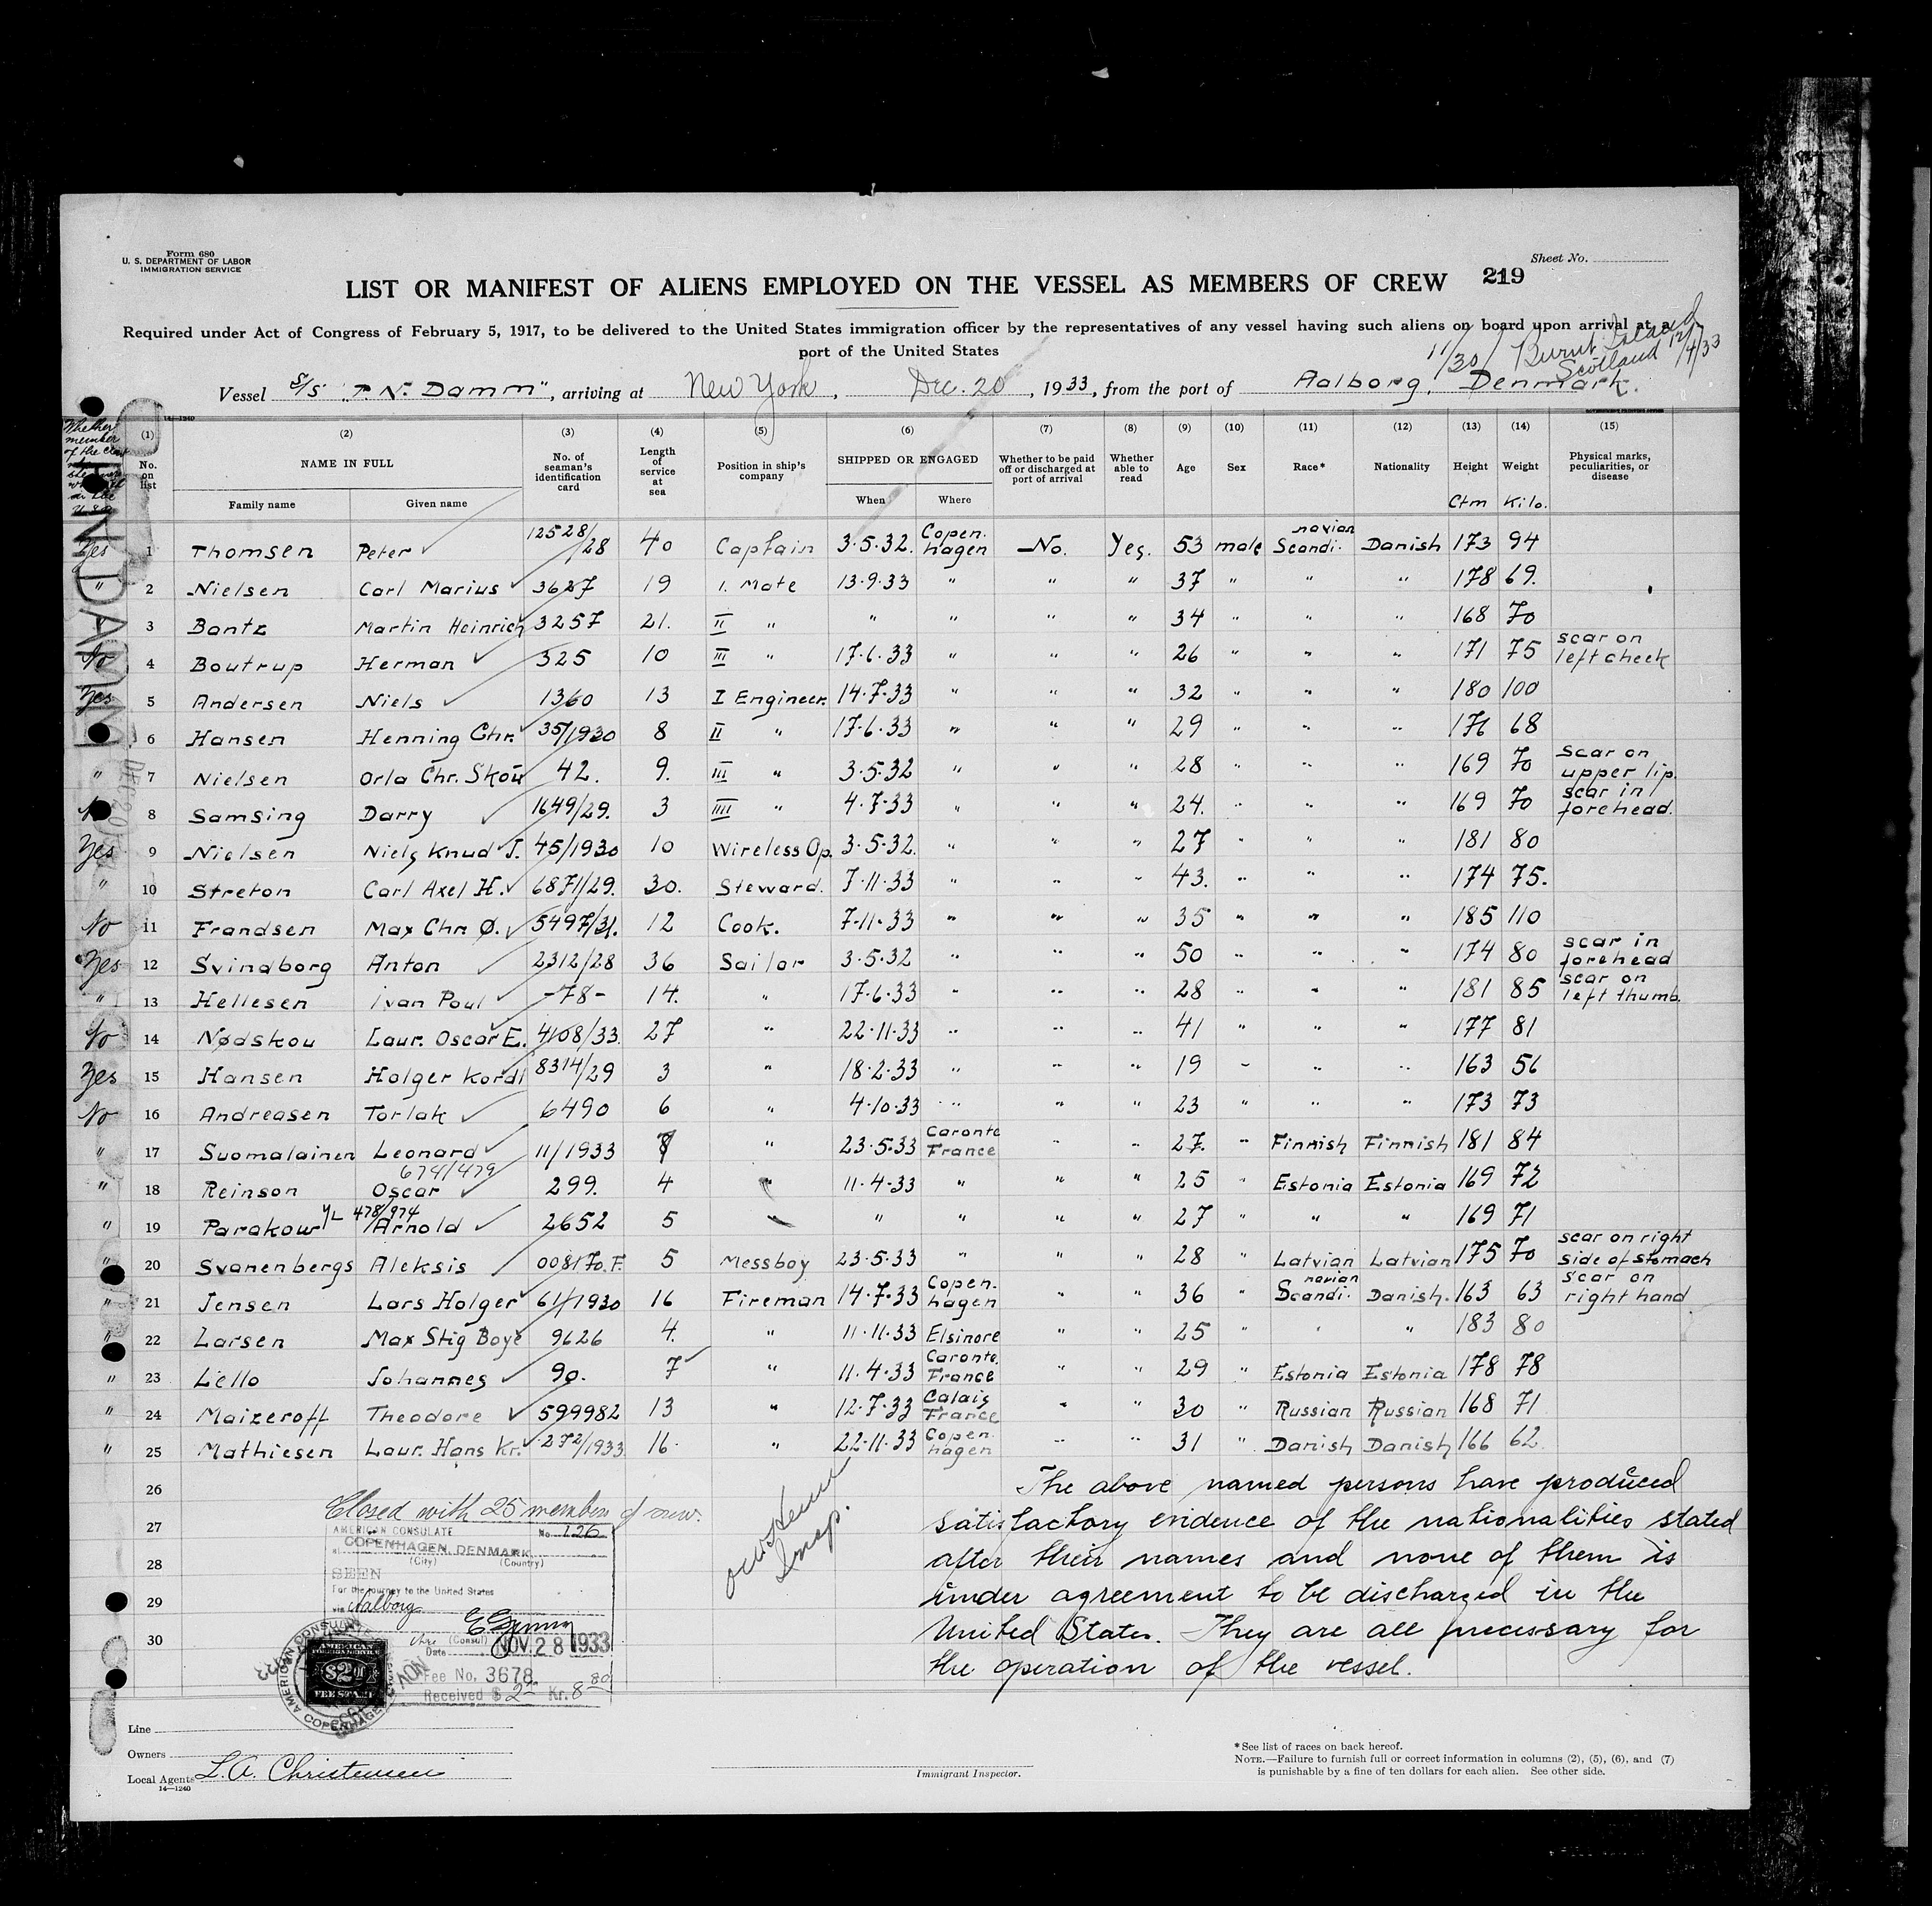 Form 680
U. S. DEPARTMENT OF LABOR
IMMIGRATION SERVICE
Sheet No.
LIST OR MANIFEST OF ALIENS EMPLOYED ON THE VESSEL AS MEMBERS OF CREW 219
Required under Act of Congress of February 5, 1917, to be delivered to the United States immigration officer by the representatives of any vessel having such aliens on board upon arrival at a
port of the United States
11/30 Burnt Island 12/4/33
Scotland
Vessel S/S "P. N. Damm", arriving at New York, Dec. 20, 1933, from the port of Aalborg, Denmark.
14-1240
Whether member of the crew
(1) (2) (3) (4) (5) (6) (7) (8) (9) (10) (11) (12) (13) (14) (15)
No. on list NAME IN FULL No. of seaman's identification card Length of service at sea Position in ship's company SHIPPED OR ENGAGED Whether to be paid off or discharged at port of arrival Whether able to read Age Sex Race* Nationality Height Weight Physical marks, peculiarities, or disease
Family name Given name When Where Ctm Kilo.
Yes 1 Thomsen Peter 12528/28 40 Captain 3.5.32. Copen.hagen No. Yes. 53 male Scandi.navian Danish 173 94
" 2 Nielsen Carl Marius 3627 19 1. Mate 13.9.33 " " " 37 " " " 178 69.
" 3 Bantz Martin Heinrich 3257 21. II " " " " " 34 " " " 168 70
No 4 Boutrup Herman 325 10 III " 17.6.33 " " " 26 " " " 171 75 scar on left cheek
Yes 5 Andersen Niels 1360 13 I Engineer. 14.7.33 " " " 32 " " " 180 100
6 Hansen Henning Chr. 35/1930 8 II " 17.6.33 " " " 29 " " " 176 68
" 7 Nielsen Orla Chr. Skou 42. 9. III " 3.5.32 " " " 28 " " " 169 70 scar on upper lip.
No 8 Samsing Darry 1649/29. 3 IIII " 4.7.33 " " " 24. " " " 169 70 scar in forehead.
Yes 9 Nielsen Niels Knud J. 45/1930 10 Wireless Op. 3.5.32. " " " 27 " " " 181 80
" 10 Streton Carl Axel H. 6871/29. 30. Steward. 7.11.33 " " " 43. " " " 174 75.
No 11 Frandsen Max Chr. Ø. 5497/31. 12 Cook. 7.11.33 " " " 35 " " " 185 110
Yes 12 Svindborg Anton 2312/28 36 Sailor 3.5.32 " " " 50 " " " 174 80 scar in forehead
" 13 Hellesen Ivan Poul -78- 14. " 17.6.33 " " " 28 " " " 181 85 scar on left thumb.
No 14 Nødskou Laur. Oscar E. 4108/33. 27 " 22.11.33 " " " 41 " " " 177 81
Yes 15 Hansen Holger Kordt 8314/29 3 " 18.2.33 " " " 19 " " " 163 56
No 16 Andreasen Torlak 6490 6 " 4.10.33 " " " 23 " " " 173 73
" 17 Suomalainen Leonard 11/1933 8 " 23.5.33 Caronte France " " 27. " Finnish Finnish 181 84
674/479
" 18 Reinson Oscar 299. 4 " 11.4.33 " " " 25 " Estonia Estonia 169 72
478/974
" 19 Parakow Arnold 2652 5 " " " " " 27 " " " 169 71
" 20 Svanenbergs Aleksis 008170.F. 5 Messboy 23.5.33 " " " 28 " Latvian Latvian 175 70 scar on right side of stomach
" 21 Jensen Lars Holger 61/1930 16 Fireman 14.7.33 Copen.hagen " " 36 " Scandi.navian Danish. 163 63 scar on right hand
" 22 Larsen Max Stig Boye 9626 4. " 11.11.33 Elsinore " " 25 " " " 183 80
" 23 Liello Johannes 90. 7 " 11.4.33 Caronte. France " " 29 " Estonia Estonia 178 78
" 24 Maizeroff Theodore 599982 13 " 12.7.33 Calais France " " 30 " Russian Russian 168 71
" 25 Mathiesen Laur. Hans Kr. 272/1933 16. " 22.11.33 Copen.hagen " " 31 " Danish Danish 166 62
26
27
28
29
30
The above named persons have produced
satisfactory evidence of the nationalities stated
after their names and none of them is
under agreement to be discharged in the
United States. They are all necessary for
the operation of the vessel.
Closed with 25 members of crew.
AMERICAN CONSULATE No. 126
at COPENHAGEN, DENMARK
(City) (Country)
SEEN
For the journey to the United States
via Aalborg
Vice (Consul)
Date NOV. 28 1933
Fee No. 3678
Received $ 2 Kr. 8.80
AMERICAN FOREIGN SERVICE
$2
FEE STAMP
Insp.
Line
Owners
Local Agents L. A. Christensen
14-1240
Immigrant Inspector.
*See list of races on back hereof.
NOTE.—Failure to furnish full or correct information in columns (2), (5), (6), and (7)
is punishable by a fine of ten dollars for each alien. See other side.